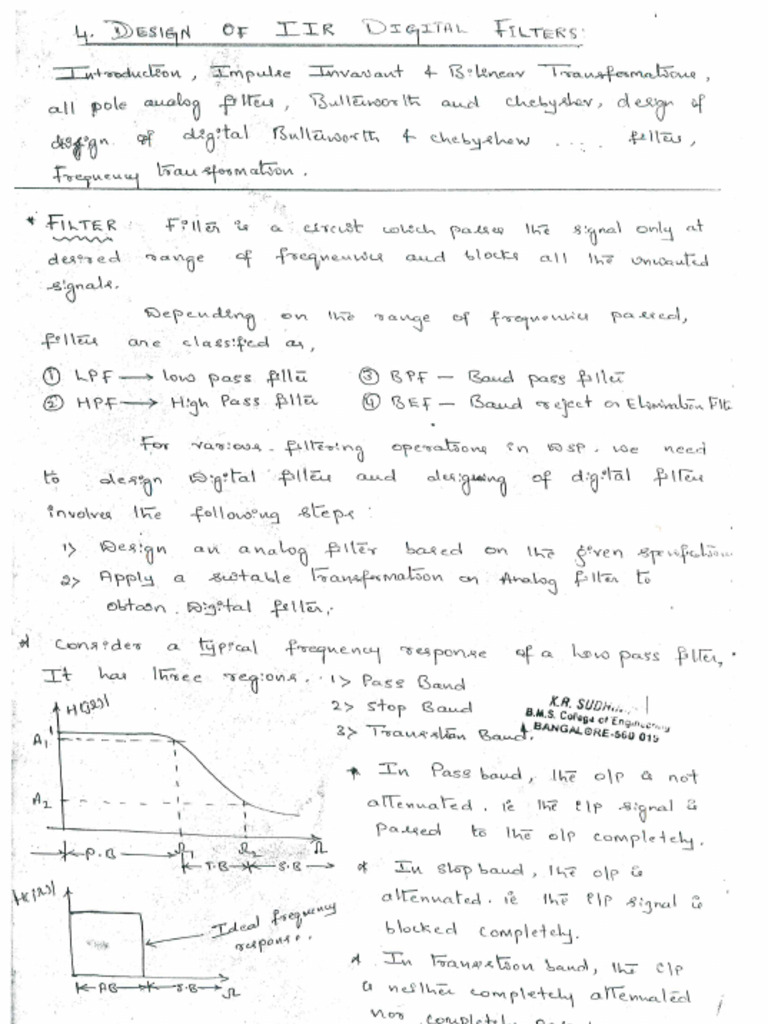 4. DESIGN OF IIR DIGITAL FILTERS:
Introduction, Impulse Invariant & Bilinear Transformations,
all pole analog filters, Butterworth and chebyshev, design of
design of digital Butterworth & chebyshow .... filters,
Frequency transformation.
* FILTER: Filter is a circuit which passes the signal only at
desired range of frequencies and blocks all the unwanted
signals.
Depending on the range of frequencies passed,
filters are classified as,
① LPF → low pass filter ③ BPF – Band pass filter
② HPF → High Pass filter ④ BEF – Band reject or Elimination Flt
For various filtering operations in DSP. we need
to design Digital filters and designing of digital filters
involves the following steps:
1> Design an analog filter based on the given specification
2> Apply a suitable transformation on Analog filter to
obtain Digital filter.
* Consider a typical frequency response of a low pass filter,
It has three regions. 1> Pass Band
2> Stop Band
3> Transition Band.
K.R. SUDHI
B.M.S. College of Engineering
BANGALORE-560 019
|H(jΩ)|
A1
A2
Ω1 Ω2 Ω
P.B T.B S.B
* In Pass band, the o/p is not
attenuated. ie the i/p signal is
passed to the o/p completely.
* In stop band, the o/p is
attenuated. ie the i/p signal is
blocked completely.
|H(jΩ)|
Ideal frequency
response.
P.B S.B Ω
* In transition band, the i/p
is neither completely attenuated
nor completely